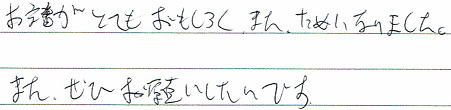 お話がとてもおもしろく、また、ためになりました。
また、ぜひお願いしたいです